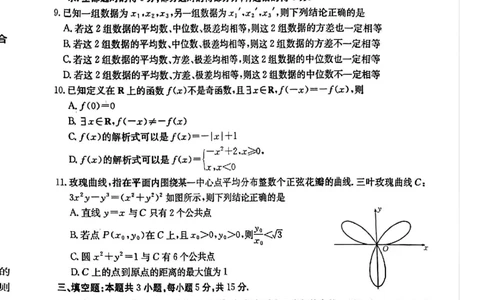 9.已知一组数据为 x₁,x₂,x₃,另一组数据为 x₁′,x₂′,x₃′,则下列结论正确的是
A.若这2组数据的平均数、中位数、极差均相等,则这2组数据的方差也一定相等
B.若这2组数据的平均数、中位数、极差均相等,则这2组数据的方差不一定相等
C.若这2组数据的平均数、方差、极差均相等,则这2组数据的中位数也一定相等
D.若这2组数据的平均数、方差、极差均相等,则这2组数据的中位数不一定相等
合
10.已知定义在 R 上的函数 f(x)不是奇函数,且∃x∈R,f(-x)=-f(x),则
A.f(0)=0
B.∃x∈R,f(-x)≠-f(x)
C.f(x)的解析式可以是 f(x)=-|x|+1
D.f(x)的解析式可以是 f(x)={-x²+2,x≥0,
x,x<0
11.玫瑰曲线,指在平面内围绕某一中心点平均分布整数个正弦花瓣的曲线.三叶玫瑰曲线 C:
3x²y-y³=(x²+y²)² 如图所示,则下列结论正确的是
A.直线 y=x 与 C 只有2个公共点
B.若点 P(x₀,y₀)在 C 上,且 x₀>0,y₀>0,则 y₀/x₀<√3
C.圆 x²+y²=1 与 C 有6个公共点
D.C 上的点到原点的距离的最大值为1
y
O
x
的
则
三、填空题:本题共3小题,每小题5分,共15分.